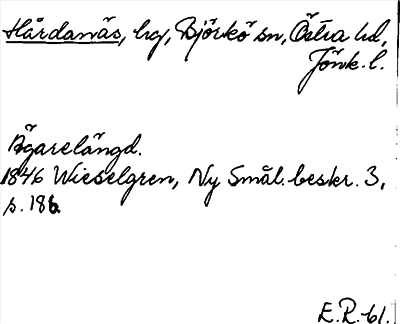 Hårdanäs, hg, Björkö sn, Östra hd,
Jönk. l.
Ägarelängd.
1846 Wieselgren, Ny Smål. beskr. 3,
s. 186
E.R. 61.